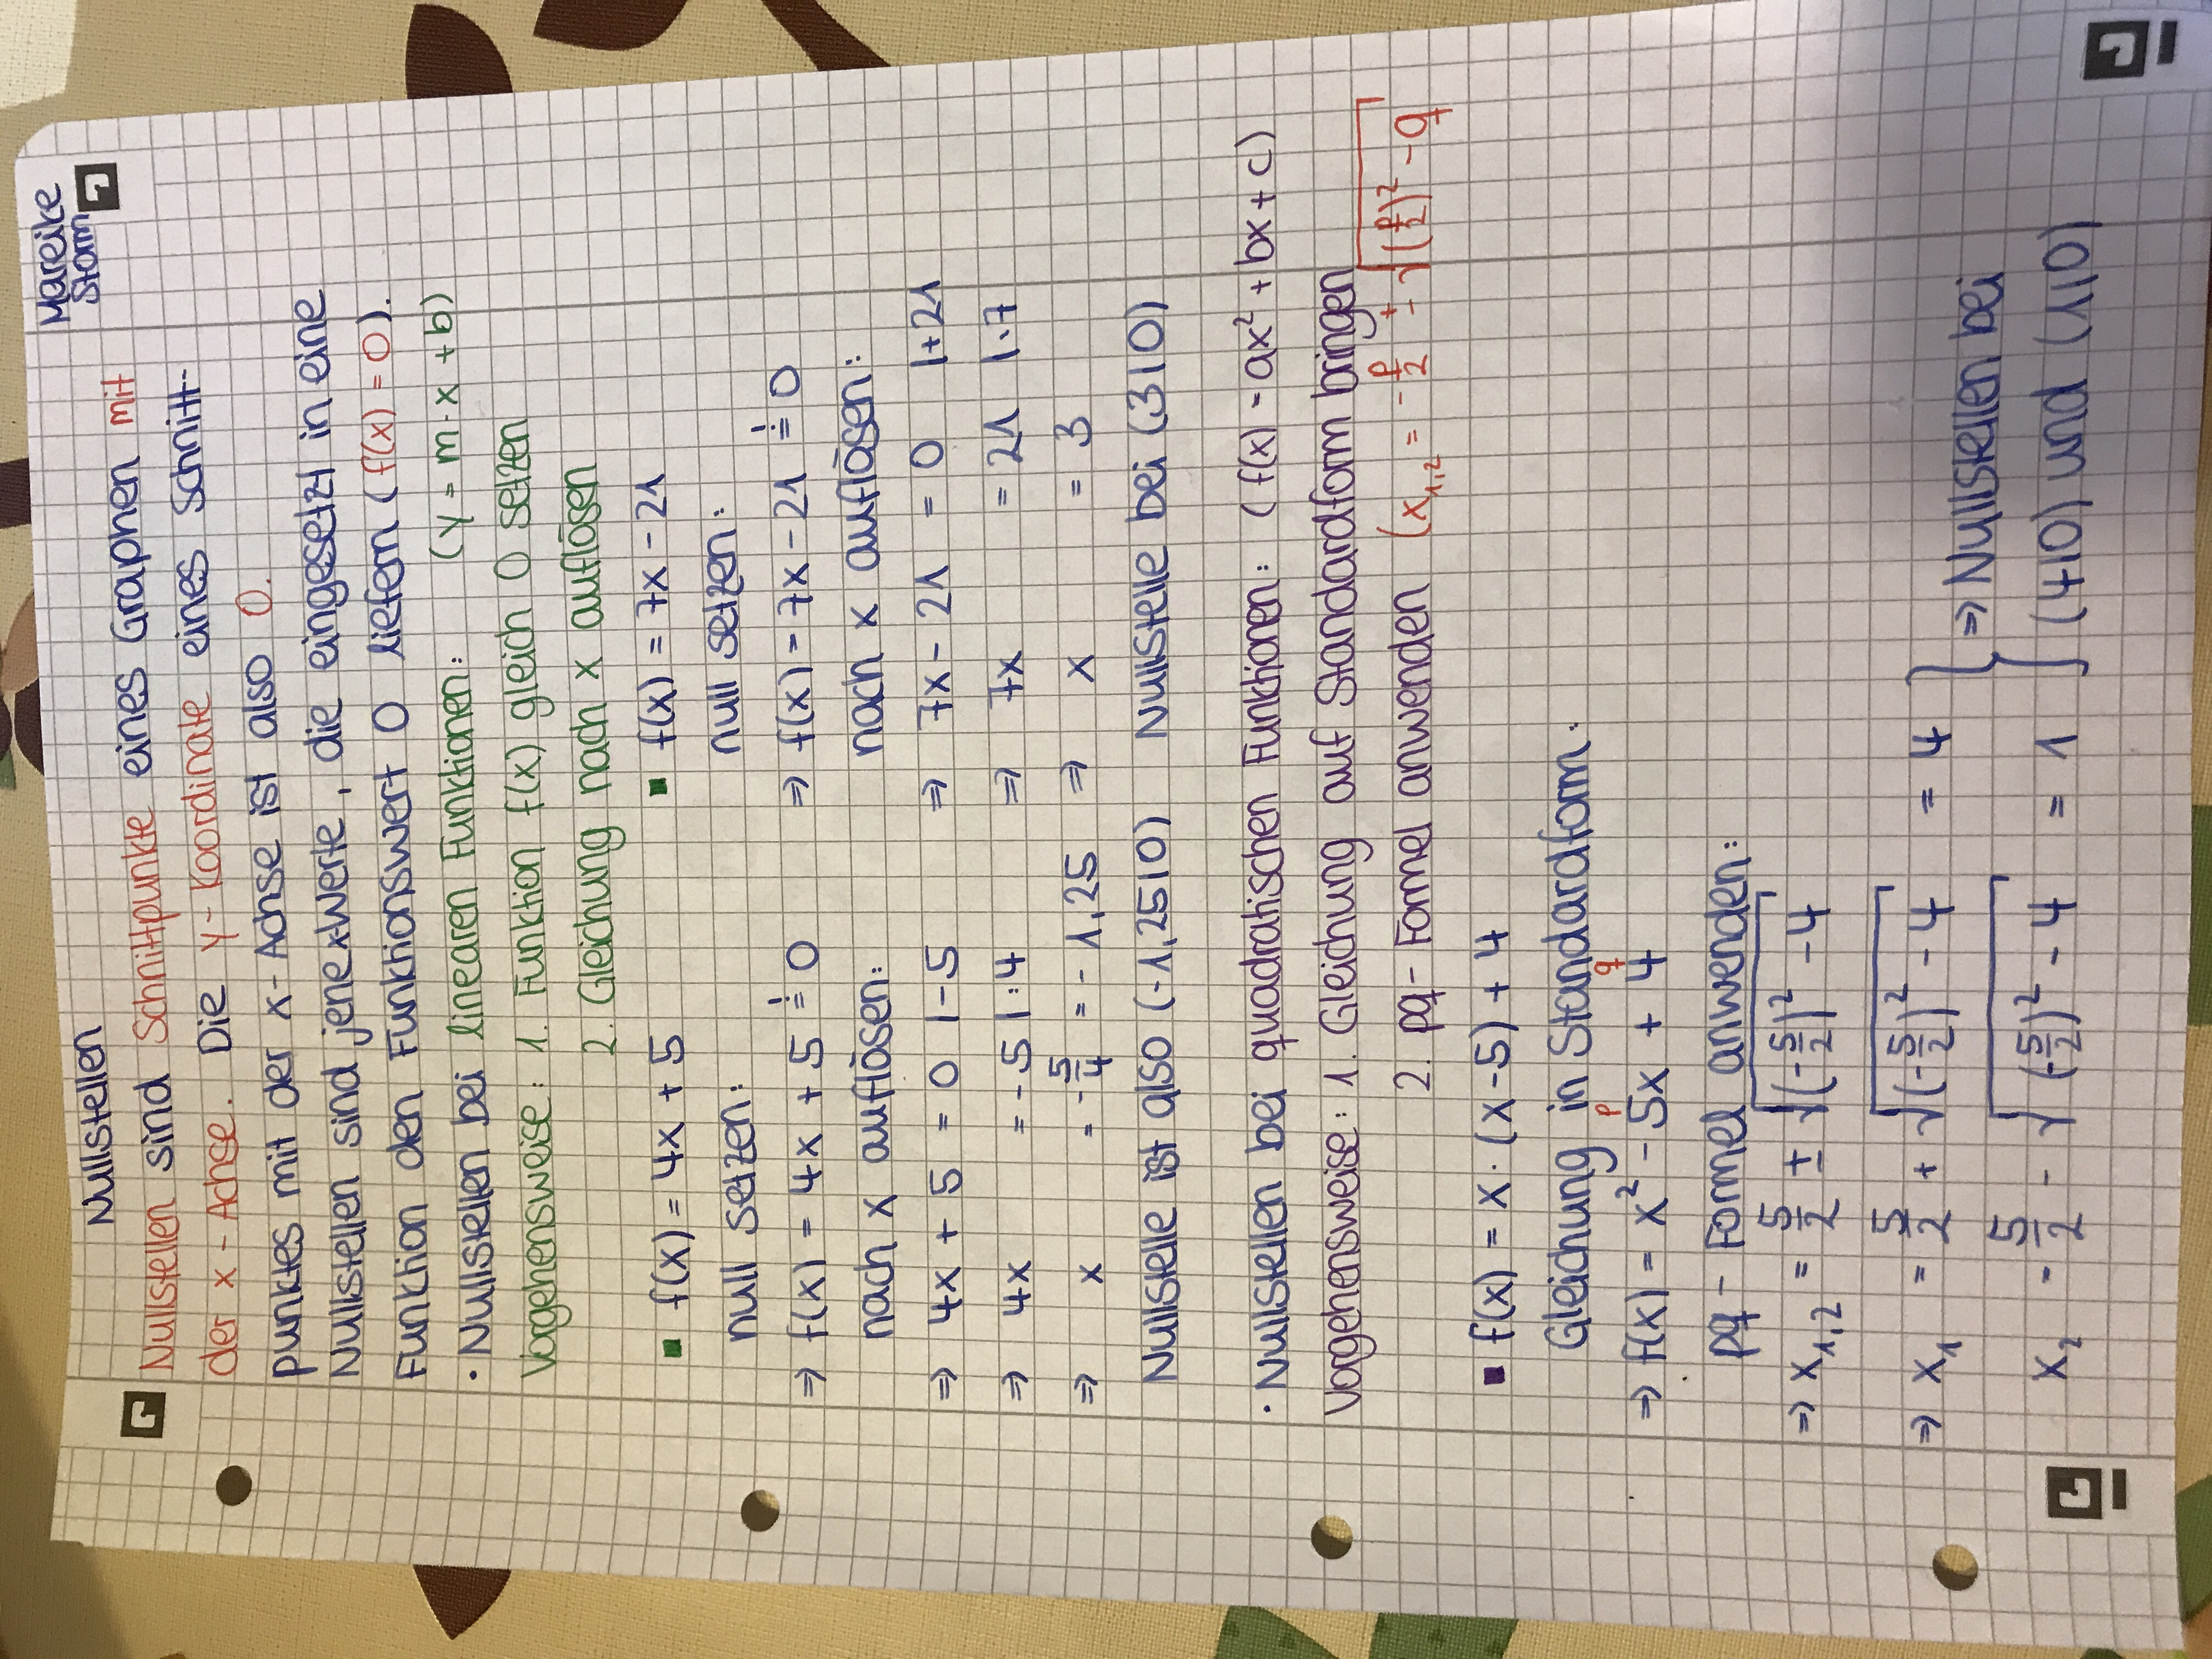 Mareike
Storm
Nullstellen
Nullstellen sind Schnittpunkte eines Graphen mit
der x-Achse. Die y-Koordinate eines Schnitt-
punktes mit der x-Achse ist also 0.
Nullstellen sind jene x-Werte, die eingesetzt in eine
Funktion den Funktionswert 0 liefern (f(x) = 0).
· Nullstellen bei linearen Funktionen: (y = m·x + b)
Vorgehensweise: 1. Funktion f(x) gleich 0 setzen
2. Gleichung nach x auflösen
▪ f(x) = 4x + 5
null setzen:
⇒ f(x) = 4x + 5 ≟ 0
nach x auflösen:
⇒ 4x + 5 = 0 |-5
⇒ 4x = -5 |:4
⇒ x = -5/4 = -1,25
Nullstelle ist also (-1,25|0)
▪ f(x) = 7x - 21
null setzen:
⇒ f(x) = 7x - 21 ≟ 0
nach x auflösen:
⇒ 7x - 21 = 0 |+21
⇒ 7x = 21 |·7
⇒ x = 3
Nullstelle bei (3|0)
· Nullstellen bei quadratischen Funktionen: (f(x) = ax² + bx + c)
Vorgehensweise: 1. Gleichung auf Standardform bringen
2. pq-Formel anwenden (x₁,₂ = -p/2 ± √((p/2)² - q
▪ f(x) = x·(x-5) + 4
Gleichung in Standardform:
p q
⇒ f(x) = x² - 5x + 4
pq-Formel anwenden:
⇒ x₁,₂ = 5/2 ± √((-5/2)² - 4)
⇒ x₁ = 5/2 + √((-5/2)² - 4) = 4
x₂ = 5/2 - √((-5/2)² - 4) = 1
⇒ Nullstellen bei
(4|0) und (1|0)